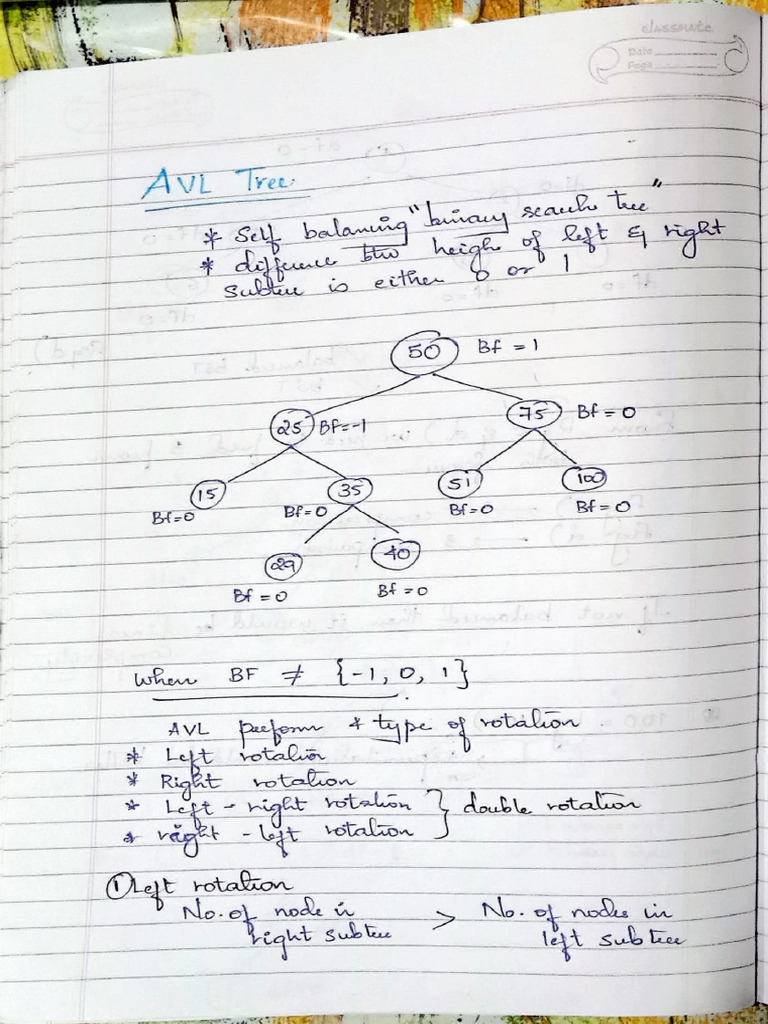 classmate
Date
Page
AVL Tree.
* Self balancing "binary search tree"
* diffeence btw heigh of left & right
subtee is either 0 or 1
50 Bf = 1
25 Bf=-1 75 Bf = 0
15 35 51 100
Bf=0 Bf=0 Bf=0 Bf=0
29 40
Bf=0 Bf=0
When BF ≠ {-1, 0, 1}.
AVL peeform 4 type of rotation
* Left rotation
* Right rotation
* Left - right rotation } double rotation
* right - left rotation
① Left rotation
No. of node in > No. of nodes in
right subtee left subtee